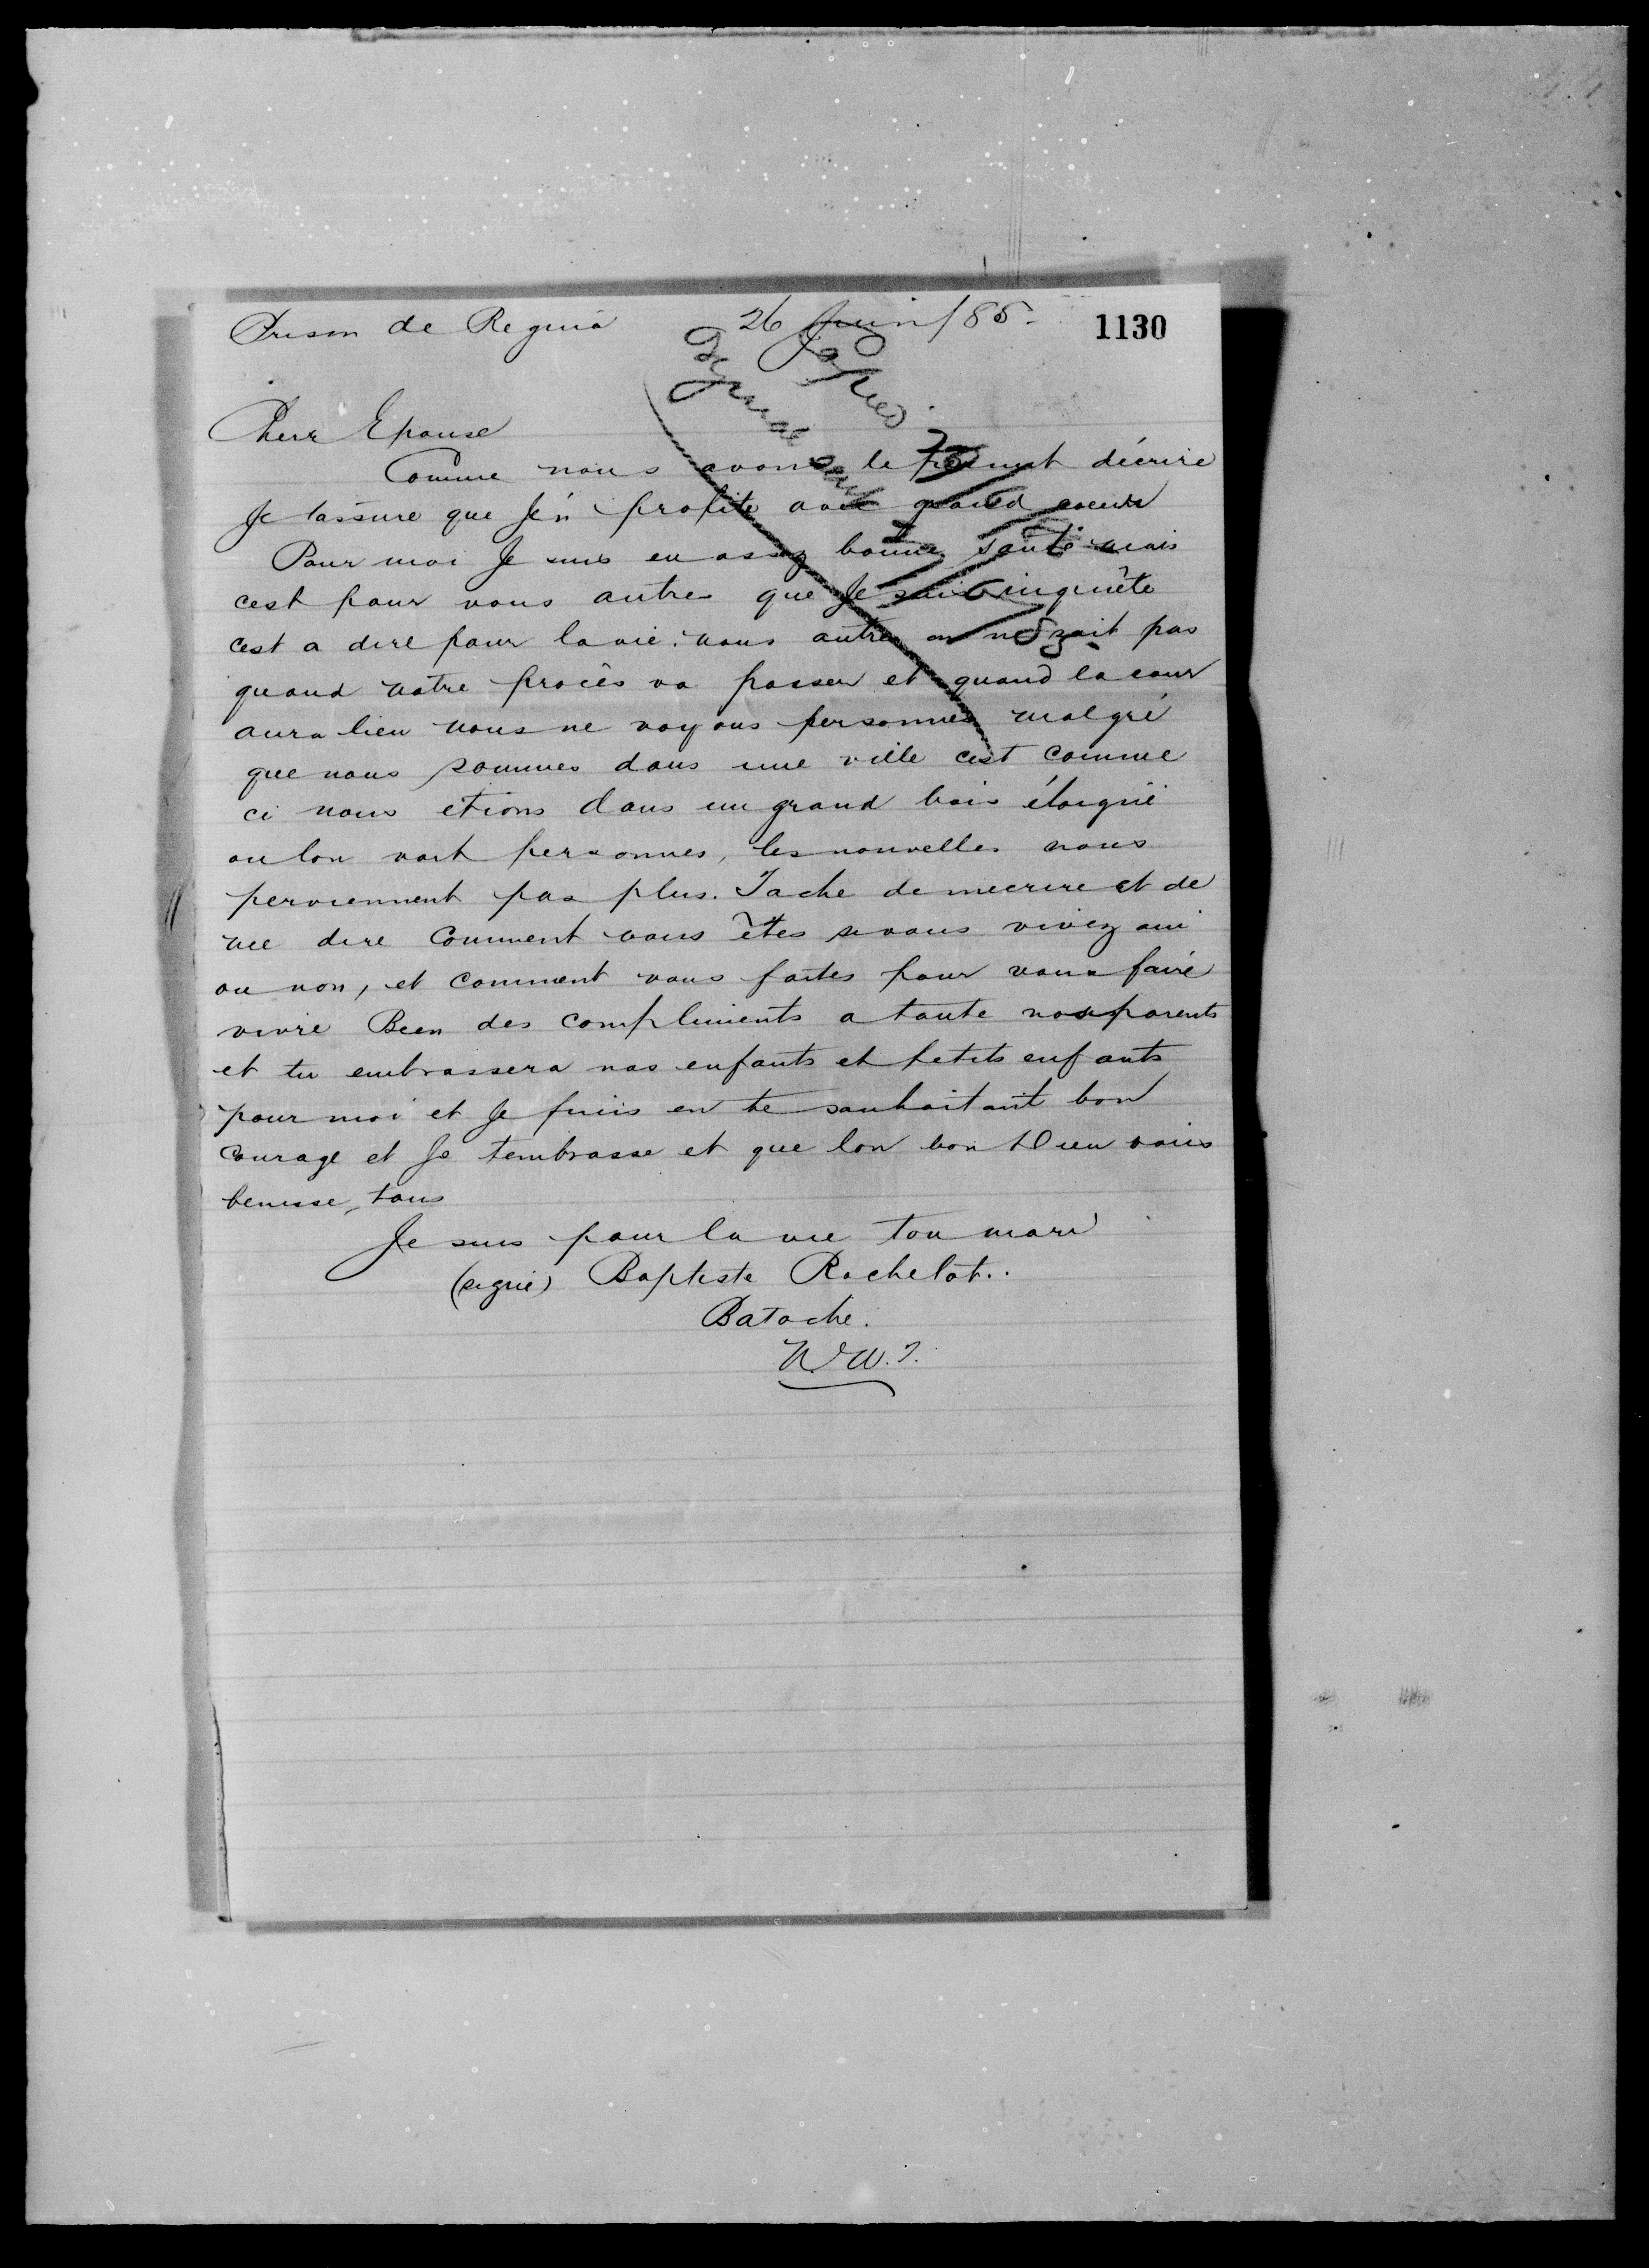 Prison de Regina 26 Juin/85. 1130
Copied
Cherr Epouse
Comme nous avons le décrire
Je tassure que Jén profite avec grand coeur
Pour moi Je suis en assez bonne santé mais
cest pour vous autres que Je suis inquiête
cest a dire pour la vie. nous autres on ne sait pas
quand notre procês va passer et quand la cour
aura lieu nous ne voyons personnes malgré
que nous sommes dans une ville cest comme
ci nous etions dans un grand bois éloigné
ou lon voit personnes, les nouvelles nous
perviennent pas plus. Tache de mecrire et de
me dire comment vous êtes si vous vivez oui
ou non, et comment vous faites pour vous faire
vivre Bien des compliments a toute nos parents
et tu embrassera nos enfants et petits enfants
pour moi et Je finis en te souhaitant bon
courage et Je tembrasse et que lon bon Dieu vous
benisse, tous
Je suis pour la vie ton mari
(signé) Baptiste Rochelot..
Batoche.
N.W.T.